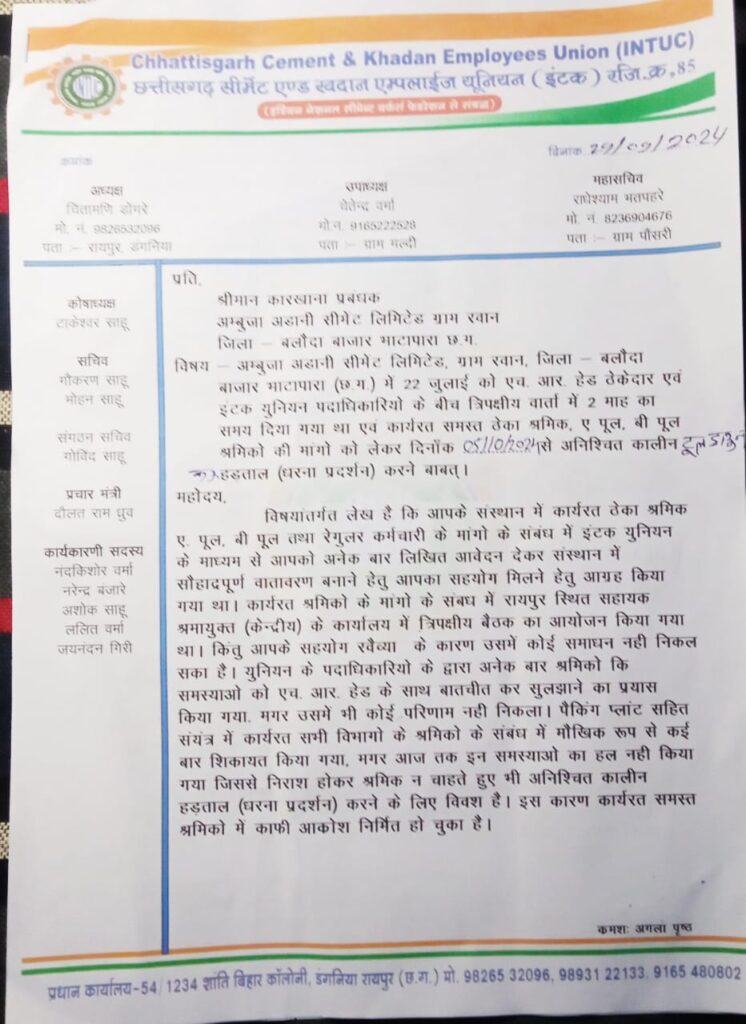 Chhattisgarh Cement & Khadan Employees Union (INTUC)
छत्तीसगढ़ सीमेंट एण्ड खदान एम्पलाईज यूनियन ( इंटक ) रजि.क्र.85
(इंडियन नेशनल सीमेन्ट वर्कर्स फेडरेशन से संबद्ध)
क्रमांक
दिनांक 29/09/2024
अध्यक्ष
चिंतामणि डोंगरे
मो. नं. 9826532096
पता :– रायपुर, डंगनिया
उपाध्यक्ष
चेतेन्द्र वर्मा
मो.न. 9165222528
पता :– ग्राम मल्दी
महासचिव
राधेश्याम भतपहरे
मो. नं. 8236904676
पता :– ग्राम पौंसरी
कोषाध्यक्ष
टाकेश्वर साहू
सचिव
गौकरण साहू
मोहन साहू
संगठन सचिव
गोविंद साहू
प्रचार मंत्री
दौलत राम ध्रुव
कार्यकारणी सदस्य
नंदकिशोर वर्मा
नरेन्द्र बंजारे
अशोक साहू
ललित वर्मा
जयनंदन गिरी
प्रति,
श्रीमान कारखाना प्रबंधक
अम्बुजा अडानी सीमेंट लिमिटेड ग्राम रवान
जिला – बलौदा बाजार भाटापारा छ.ग.
विषय – अम्बुजा अडानी सीमेंट लिमिटेड, ग्राम रवान, जिला – बलौदा
बाजार भाटापारा (छ.ग.) में 22 जुलाई को एच. आर. हेड ठेकेदार एवं
इंटक युनियन पदाधिकारियो के बीच त्रिपक्षीय वार्ता में 2 माह का
समय दिया गया था एवं कार्यरत समस्त ठेका श्रमिक, ए पूल, बी पूल
श्रमिको की मांगो को लेकर दिनाँक 05/10/2024 से अनिश्चित कालीन टूल डाउन
कर हड़ताल (धरना प्रदर्शन) करने बाबत्।
महोदय,
विषयांतर्गत लेख है कि आपके संस्थान में कार्यरत ठेका श्रमिक
ए. पूल, बी पूल तथा रेगुलर कर्मचारी के मांगो के संबंध में इंटक युनियन
के माध्यम से आपको अनेक बार लिखित आवेदन देकर संस्थान में
सौहाद्रपूर्ण वातावरण बनाने हेतु आपका सहयोग मिलने हेतु आग्रह किया
गया था। कार्यरत श्रमिको के मांगो के संबध में रायपुर स्थित सहायक
श्रमायुक्त (केन्द्रीय) के कार्यालय में त्रिपक्षीय बैठक का आयोजन किया गया
था। किंतु आपके सहयोग रवैय्या के कारण उसमें कोई समाधन नही निकल
सका है। युनियन के पदाधिकारियो के द्वारा अनेक बार श्रमिको कि
समस्याओ को एच. आर. हेड के साथ बातचीत कर सुलझाने का प्रयास
किया गया, मगर उसमें भी कोई परिणाम नही निकला। पैकिंग प्लांट सहित
संयंत्र में कार्यरत सभी विभागो के श्रमिको के संबंध में मौखिक रूप से कई
बार शिकायत किया गया, मगर आज तक इन समस्याओ का हल नही किया
गया जिससे निराश होकर श्रमिक न चाहते हुए भी अनिश्चित कालीन
हड़ताल (धरना प्रदर्शन) करने के लिए विवश है। इस कारण कार्यरत समस्त
श्रमिको में काफी आकोश निर्मित हो चुका है।
कमशः अगला पृष्ठ
प्रधान कार्यालय-54/1234 शांति बिहार कॉलोनी, डंगनिया रायपुर (छ.ग.) मो. 98265 32096, 98931 22133, 9165 480802